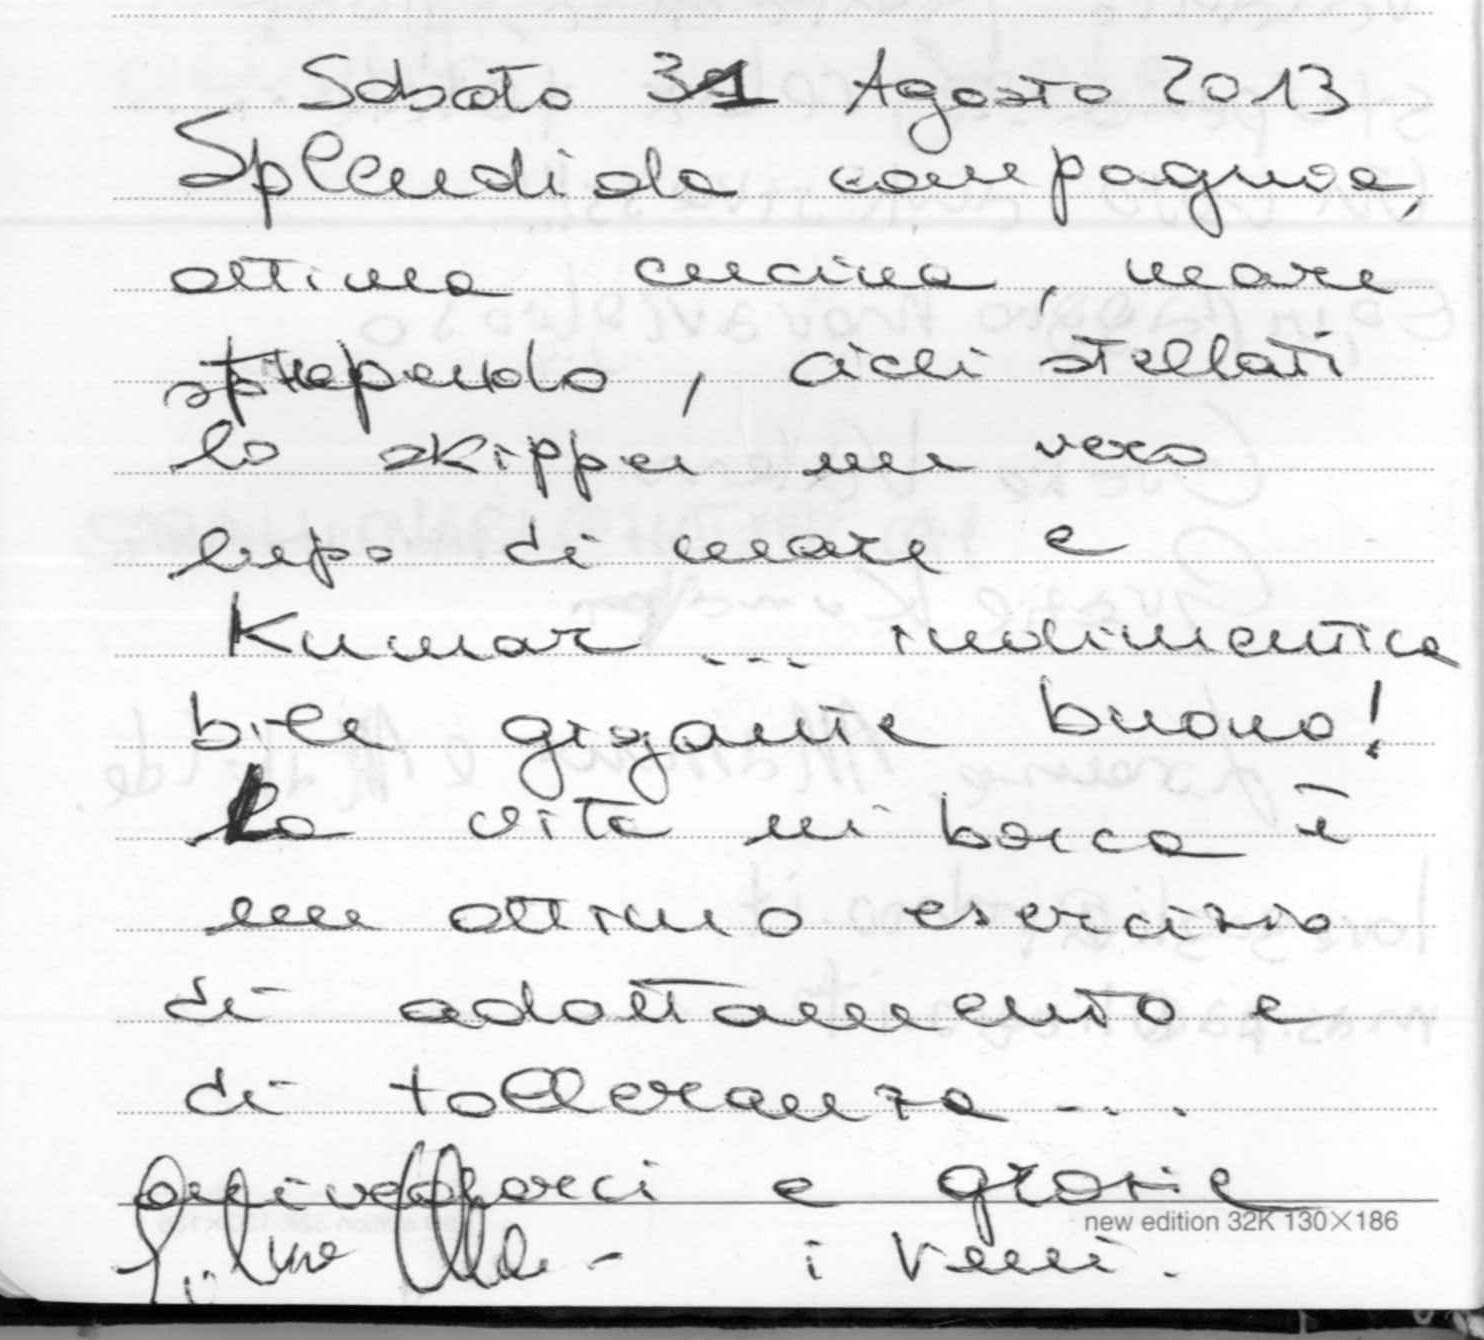 Sabato 31 Agosto 2013
Splendida compagnia,
ottima cucina, mare
stupendo, cieli stellati
lo skipper un vero
lupo di mare e
Kumar ... indimentica
bile gigante buono!
La vita in barca è
un ottimo esercizio
di adattamento e
di tolleranza ...
e grazie
new edition 32K 130×186
i